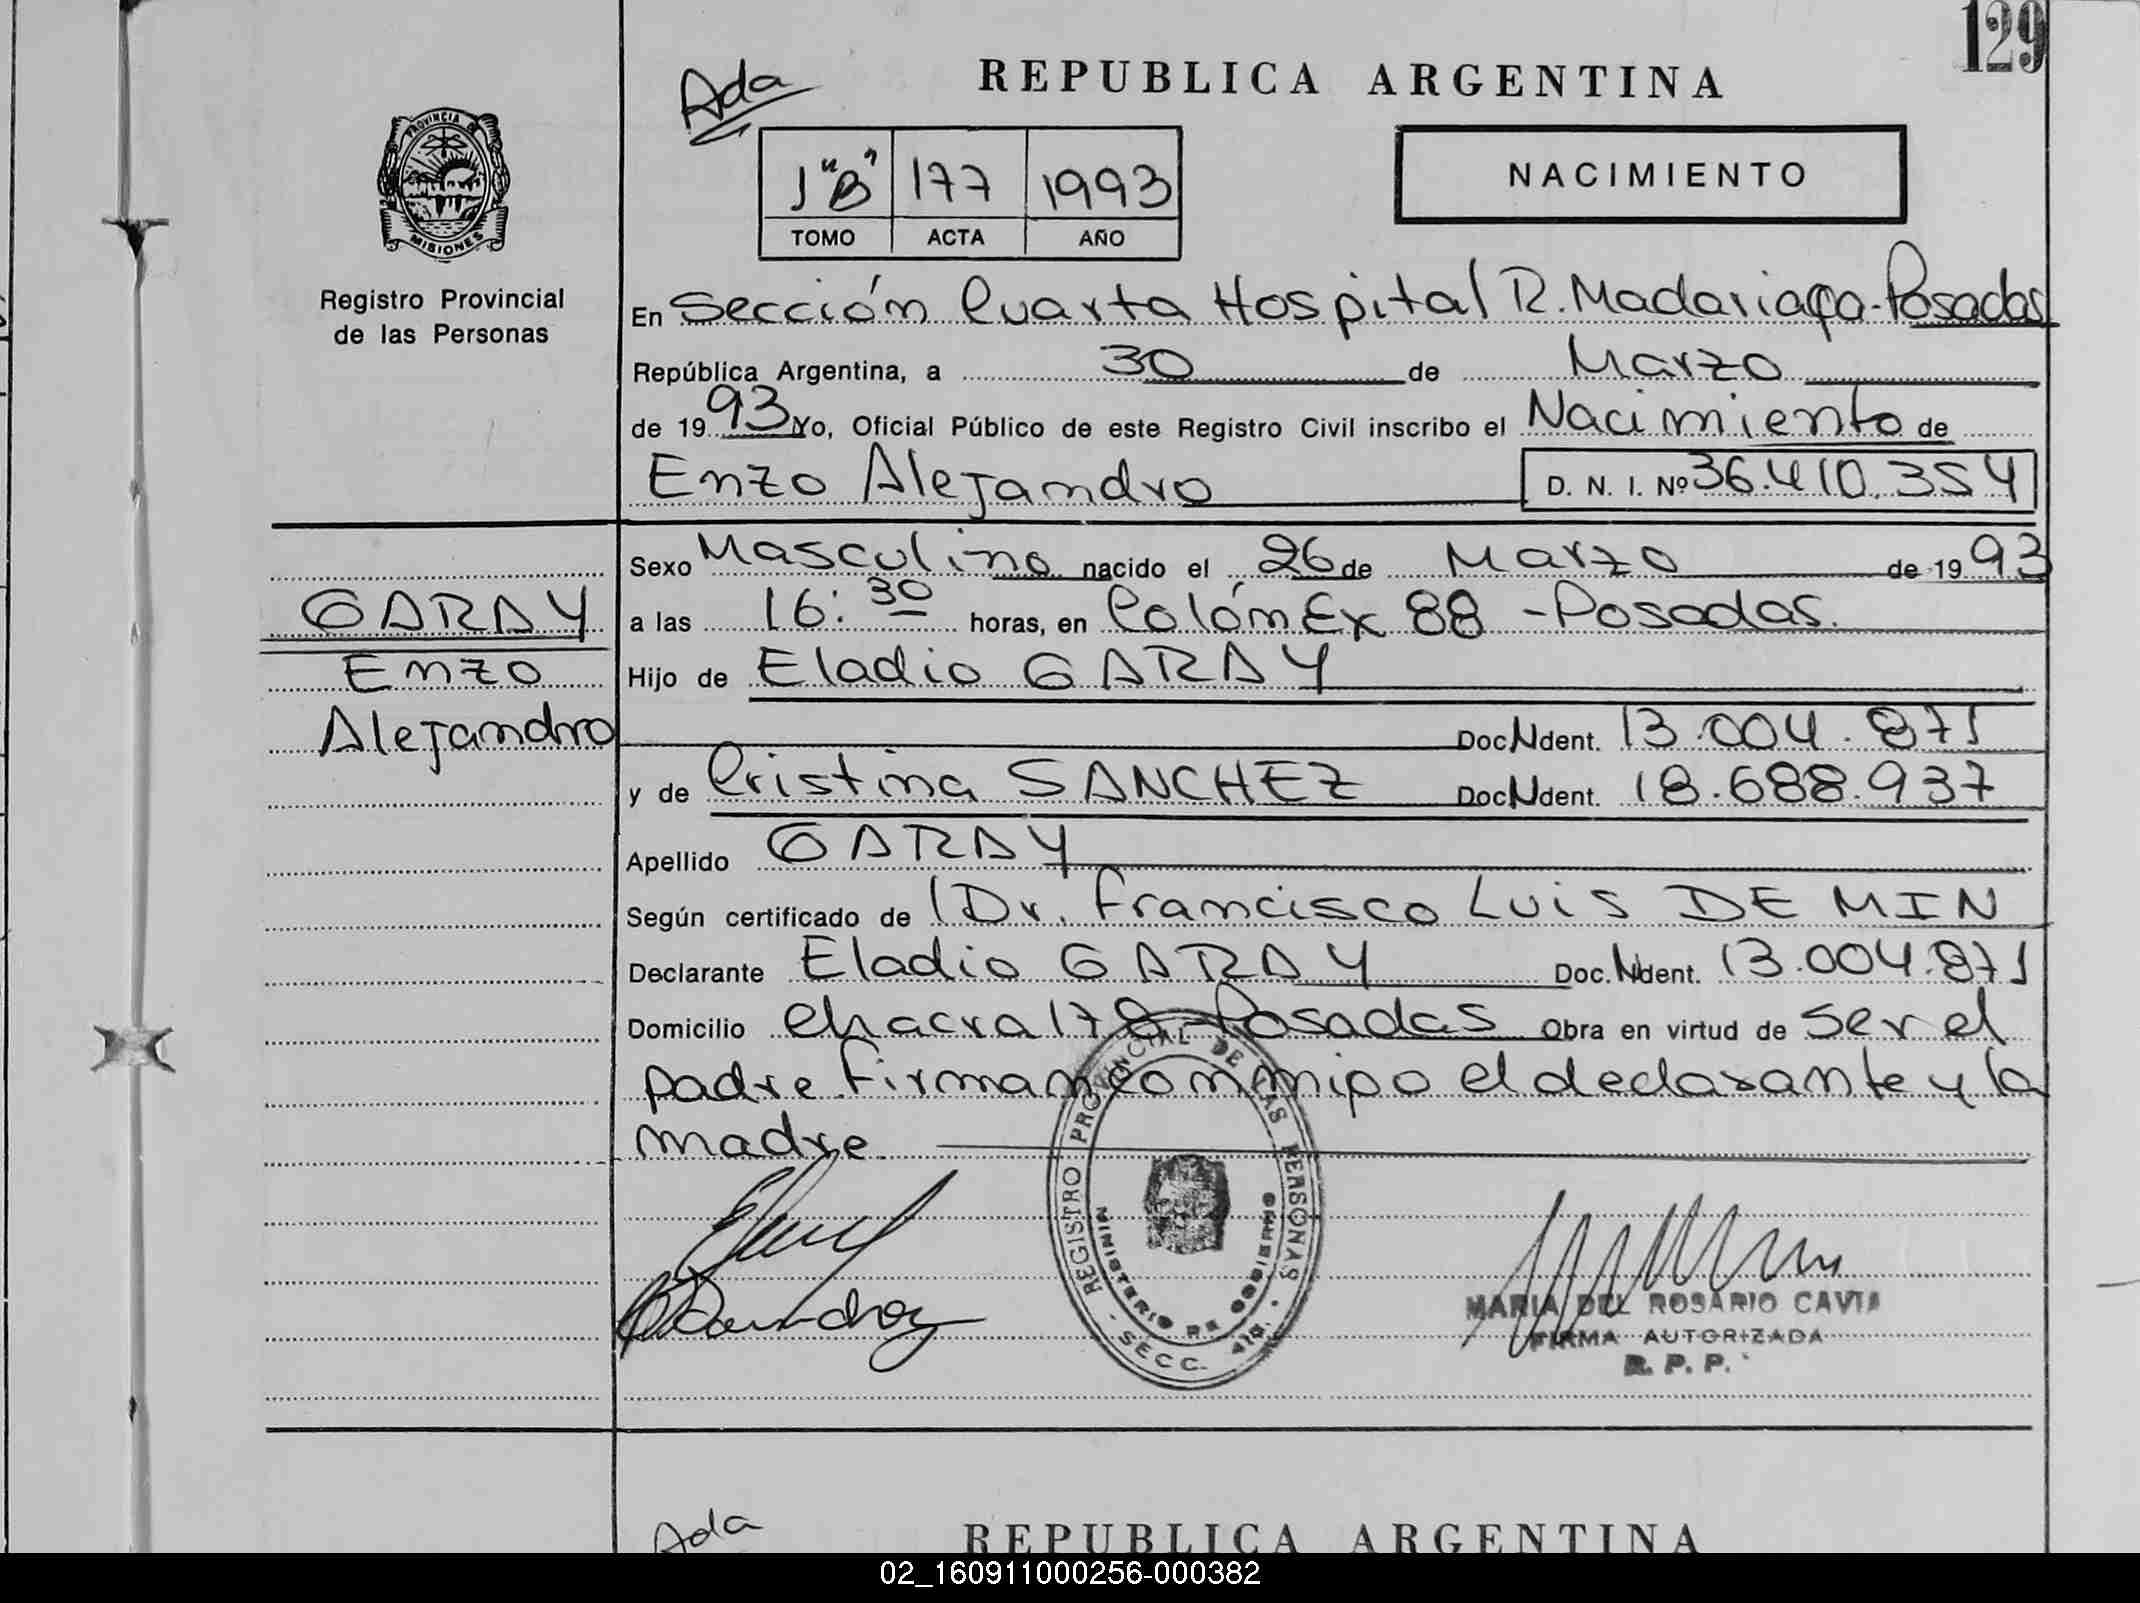 129
Ada
REPUBLICA ARGENTINA
PROVINCIA DE
MISIONES
Registro Provincial
de las Personas
1 "B" 177 1993
TOMO ACTA AÑO
NACIMIENTO
En Sección Cuarta Hospital R. Madariaga-Posadas
República Argentina, a 30 de Marzo
de 1993 Yo, Oficial Público de este Registro Civil inscribo el Nacimiento de
Enzo Alejandro D. N. I. Nº 36.410.354
Sexo Masculino nacido el 26 de Marzo de 1993
GARAY
Enzo
Alejandro
a las 16:30 horas, en Colón Ex 88 - Posadas.
Hijo de Eladio GARAY
Doc. N Ident. 13.004.871
y de Cristina SANCHEZ Doc. N Ident. 18.688.937
Apellido GARAY
Según certificado de Dr. Francisco Luis DE MIN
Declarante Eladio GARAY Doc. N Ident. 13.004.871
Domicilio chacra 178-Posadas Obra en virtud de ser el
padre. Firman conmigo el declarante y la
madre.
REGISTRO PROVINCIAL DE LAS PERSONAS
MINISTERIO DE GOBIERNO
SECC. 4ta
MARIA DEL ROSARIO CAVIA
FIRMA AUTORIZADA
R. P. P.
Ada
REPUBLICA ARGENTINA
02_160911000256-000382